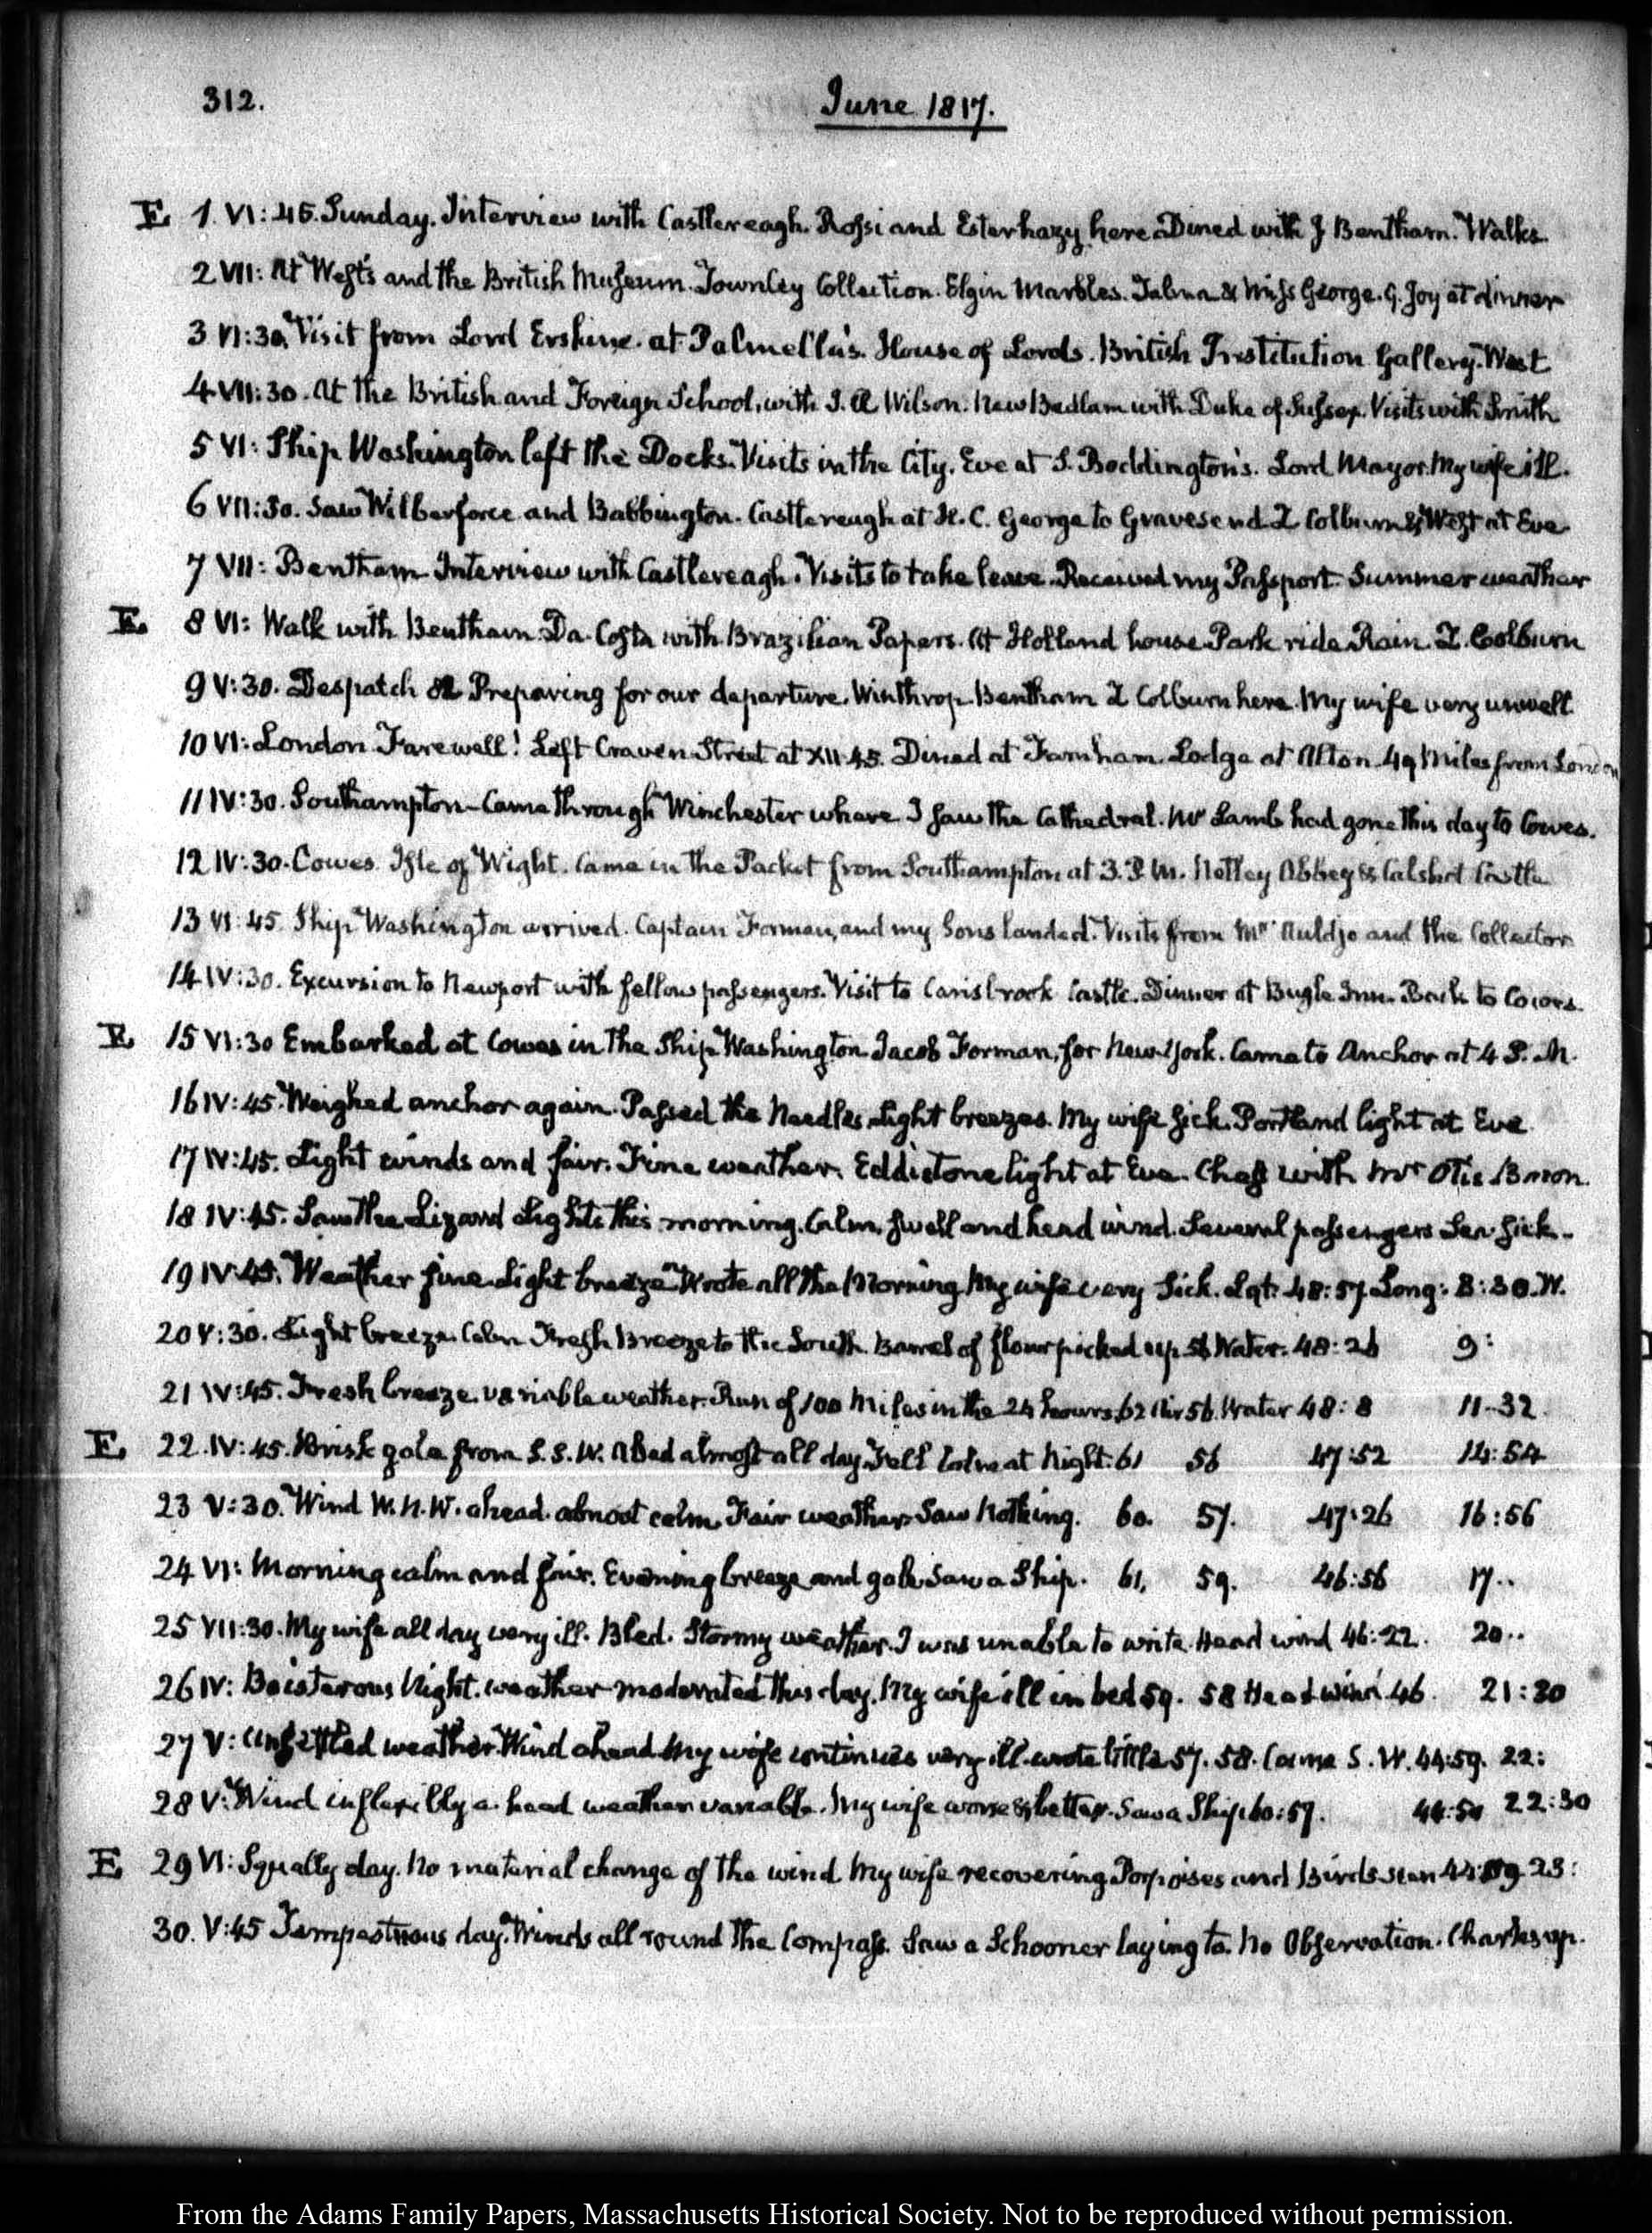 312.
June 1817.
E 1. VI:45. Sunday. Interview with Castlereagh. Rossi and Esterhazy here. Dined with J Bentham. Walks.
2 VII: At West's and the British Museum. Townley Collection. Elgin Marbles. Talma & Miss George. G. Joy at dinner
3 VI:30. Visit from Lord Erskine. at Palmella's. House of Lords. British Institution Gallery. West
4 VII:30. At the British and Foreign School, with J. A Wilson. New Bedlam with Duke of Sussex. Visits with Smith
5 VI: Ship Washington left the Docks. Visits in the City. Eve at S. Boddington's. Lord Mayor. My wife ill.
6 VII:30. Saw Wilberforce and Babbington. Castlereagh at H. C. George to Gravesend Z Colburn & West at Eve
7 VII: Bentham Interview with Castlereagh. Visits to take leave. Received my Passport. Summer weather
E 8 VI: Walk with Bentham. Da Costa with Brazilian Papers. At Holland house. Park ride. Rain. Z. Colburn
9 V:30. Despatch Preparing for our departure. Winthrop. Bentham Z Colburn here. My wife very unwell.
10 VI: London Farewell! Left Craven Street at XII.45. Dined at Farnham. Lodge at Alton. 49 Miles from London
11 IV:30. Southampton—Came through Winchester where I saw the Cathedral. Mr Lamb had gone this day to Cowes.
12 IV:30. Cowes. Isle of Wight. Came in the Packet from Southampton at 3. P. M. Netley Abbey & Calshot Castle
13 VI:45. Ship Washington arrived. Captain Forman, and my Sons landed. Visits from Mr Auldjo and the Collector
14 IV:30. Excursion to Newport with fellow passengers. Visit to Carisbrook Castle. Dinner at Bugle Inn. Back to Cowes.
E 15 VI:30 Embarked at Cowes in the Ship Washington Jacob Forman, for New-York. Came to Anchor at 4 P. M.
16 IV:45. Weighed anchor again. Passed the Needles. Light breezes. My wife sick. Portland light at Eve.
17 IV:45. Light winds and fair. Fine weather. Eddistone light at Eve. Chess with Mr Otis
18 IV:45. Saw the Lizard Lights this morning. Calm, swell and head wind. Several passengers Sea-Sick.
19 IV:45. Weather fine. Light breeze. Wrote all the Morning. My wife very Sick. Lat: 48:57. Long: 8:30. W.
20 V:30. Light breeze. Calm Fresh Breeze to the South. Barrel of flour picked up. 56 Water. 48:26 9:
21 IV:45. Fresh breeze. variable weather. Run of 100 Miles in the 24 hours. 62 Air 56. Water 48:8 11-32
E 22. IV:45. Brisk gale from S. S. W. Abed almost all day. Fell Calm at Night. 61 56 47:52 14:54
23 V:30. Wind W. N. W. ahead. almost calm. Fair weather. Saw Nothing. 60. 57. 47:26 16:56
24 VI: Morning calm and fair. Evening breeze and gale. Saw a Ship. 61. 59. 46:56 17..
25 VII:30. My wife all day very ill. Bled. Stormy weather. I was unable to write. Head wind 46:22. 20..
26 IV: Boisterous Night. weather moderated this day. My wife ill in bed 59. 58 Head wind. 46. 21:30
27 V: Unsettled weather. Wind ahead. My wife continues very ill. wrote little 57. 58. Came S. W. 44:59. 22:
28 V: Wind inflexibly a-head weather variable. My wife worse & better. Saw a Ship. 60:57. 44:50 22:30
E 29 VI: Squally day. No material change of the wind. My wife recovering. Porpoises and Birds seen 23:
30. V:45 Tempestuous day. Winds all round the Compass. Saw a Schooner laying to. No Observation. Charles up.
From the Adams Family Papers, Massachusetts Historical Society. Not to be reproduced without permission.